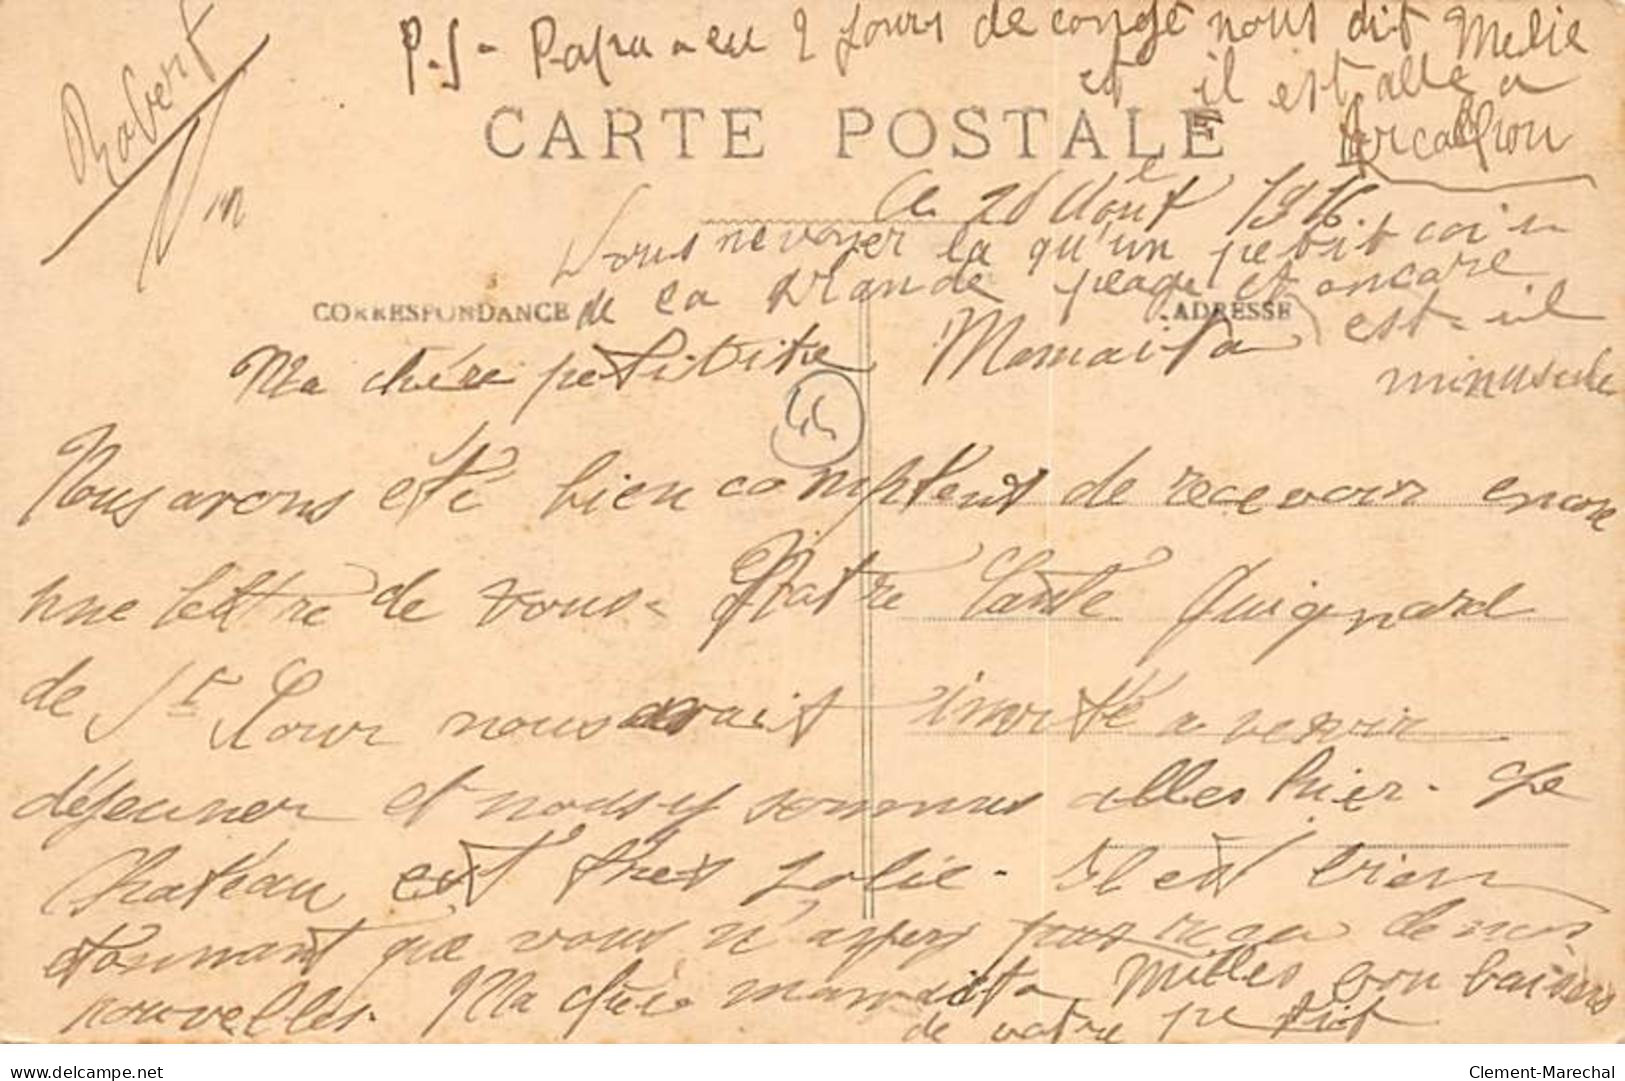 P.S - Papa a eu 2 jours de congé nous dit Melie
et il est allé a
Arcachon
CARTE POSTALE
Le 26 Août 1916.
Vous ne voyez la qu'un petit coin
de la Grande plage et encore
est-il
minuscule
CORRESPONDANCE
ADRESSE
Ma chère petitite Mamaita
44
Nous avons été bien comptent de recevoir encore
une lettre de vous. Notre tante Guignard
de St Cour nous avait invité a venir
déjeuner et nous y sommes alles hier. Le
Chateau est très jolie. Il est bien
étonnant que vous n'ayez pas reçu de nos
nouvelles. Ma chère mamaita Milles bon baisers
de votre petiot
Robert
Clement-Marechal